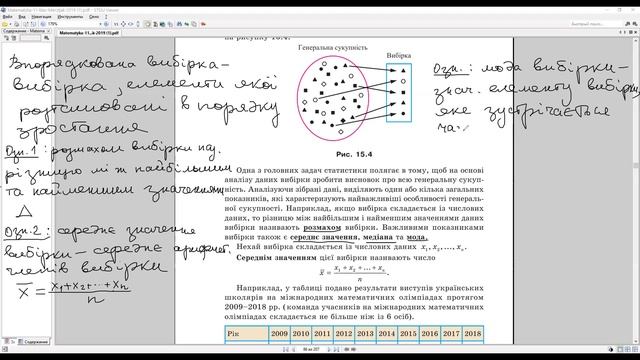 Matematyka-11-klas-Merzljak-2019 (1).pdf - STDU Viewer
Файл Правка Вид Навигация Инструменты Окно Помощь
170%
Быстрый поиск
Содержание - Matema
Matematyka-11...k-2019 (1).pdf
на рисунку 15.4.
Генеральна сукупність
Вибірка
Рис. 15.4
Впорядкована вибірка -
вибірка, елементи якої
розташовані в порядку
зростання
Озн.1: розмахом вибірки наз.
різницю між найбільшим
та найменшим значеннями
△
Озн.2: середнє значення
вибірки - середнє арифмет.
членів вибірки
x̄ = x₁+x₂+...+xₙ / n
Озн.: мода вибірки -
знач. елементу вибірки,
яке зустрічається
час
Одна з головних задач статистики полягає в тому, щоб на основі
аналізу даних вибірки зробити висновок про всю генеральну сукуп-
ність. Аналізуючи зібрані дані, виділяють один або кілька загальних
показників, які характеризують найважливіші особливості генераль-
ної сукупності. Наприклад, якщо вибірка складається із числових
даних, то різницю між найбільшим і найменшим значеннями даних
вибірки називають розмахом вибірки. Важливими показниками
вибірки також є середнє значення, медіана та мода.
Нехай вибірка складається із числових даних x₁, x₂, ..., xₙ.
Середнім значенням цієї вибірки називають число
x̄ = x₁ + x₂ + ... + xₙ / n
Наприклад, у таблиці подано результати виступів українських
школярів на міжнародних математичних олімпіадах протягом
2009–2018 рр. (команда учасників на міжнародних математичних
олімпіадах складається не більше ніж із 6 осіб).
Рік 2009 2010 2011 2012 2013 2014 2015 2016 2017 2018
Содержание